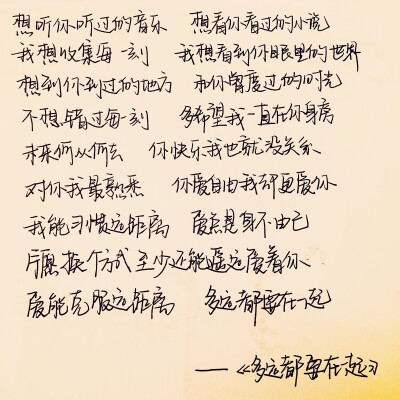 想听你听过的音乐 想看你看过的小说
我想收集每一刻 我想看到你眼里的世界
想到你到过的地方 和你曾度过的时光
不想错过每一刻 多希望我一直在你身旁
未来何从何去 你快乐我也就没关系
对你我最熟悉 你爱自由我却更爱你
我能习惯远距离 爱总是身不由己
宁愿换个方式 至少还能遥远爱着你
爱能克服远距离 多远都要在一起
——《多远都要在一起》